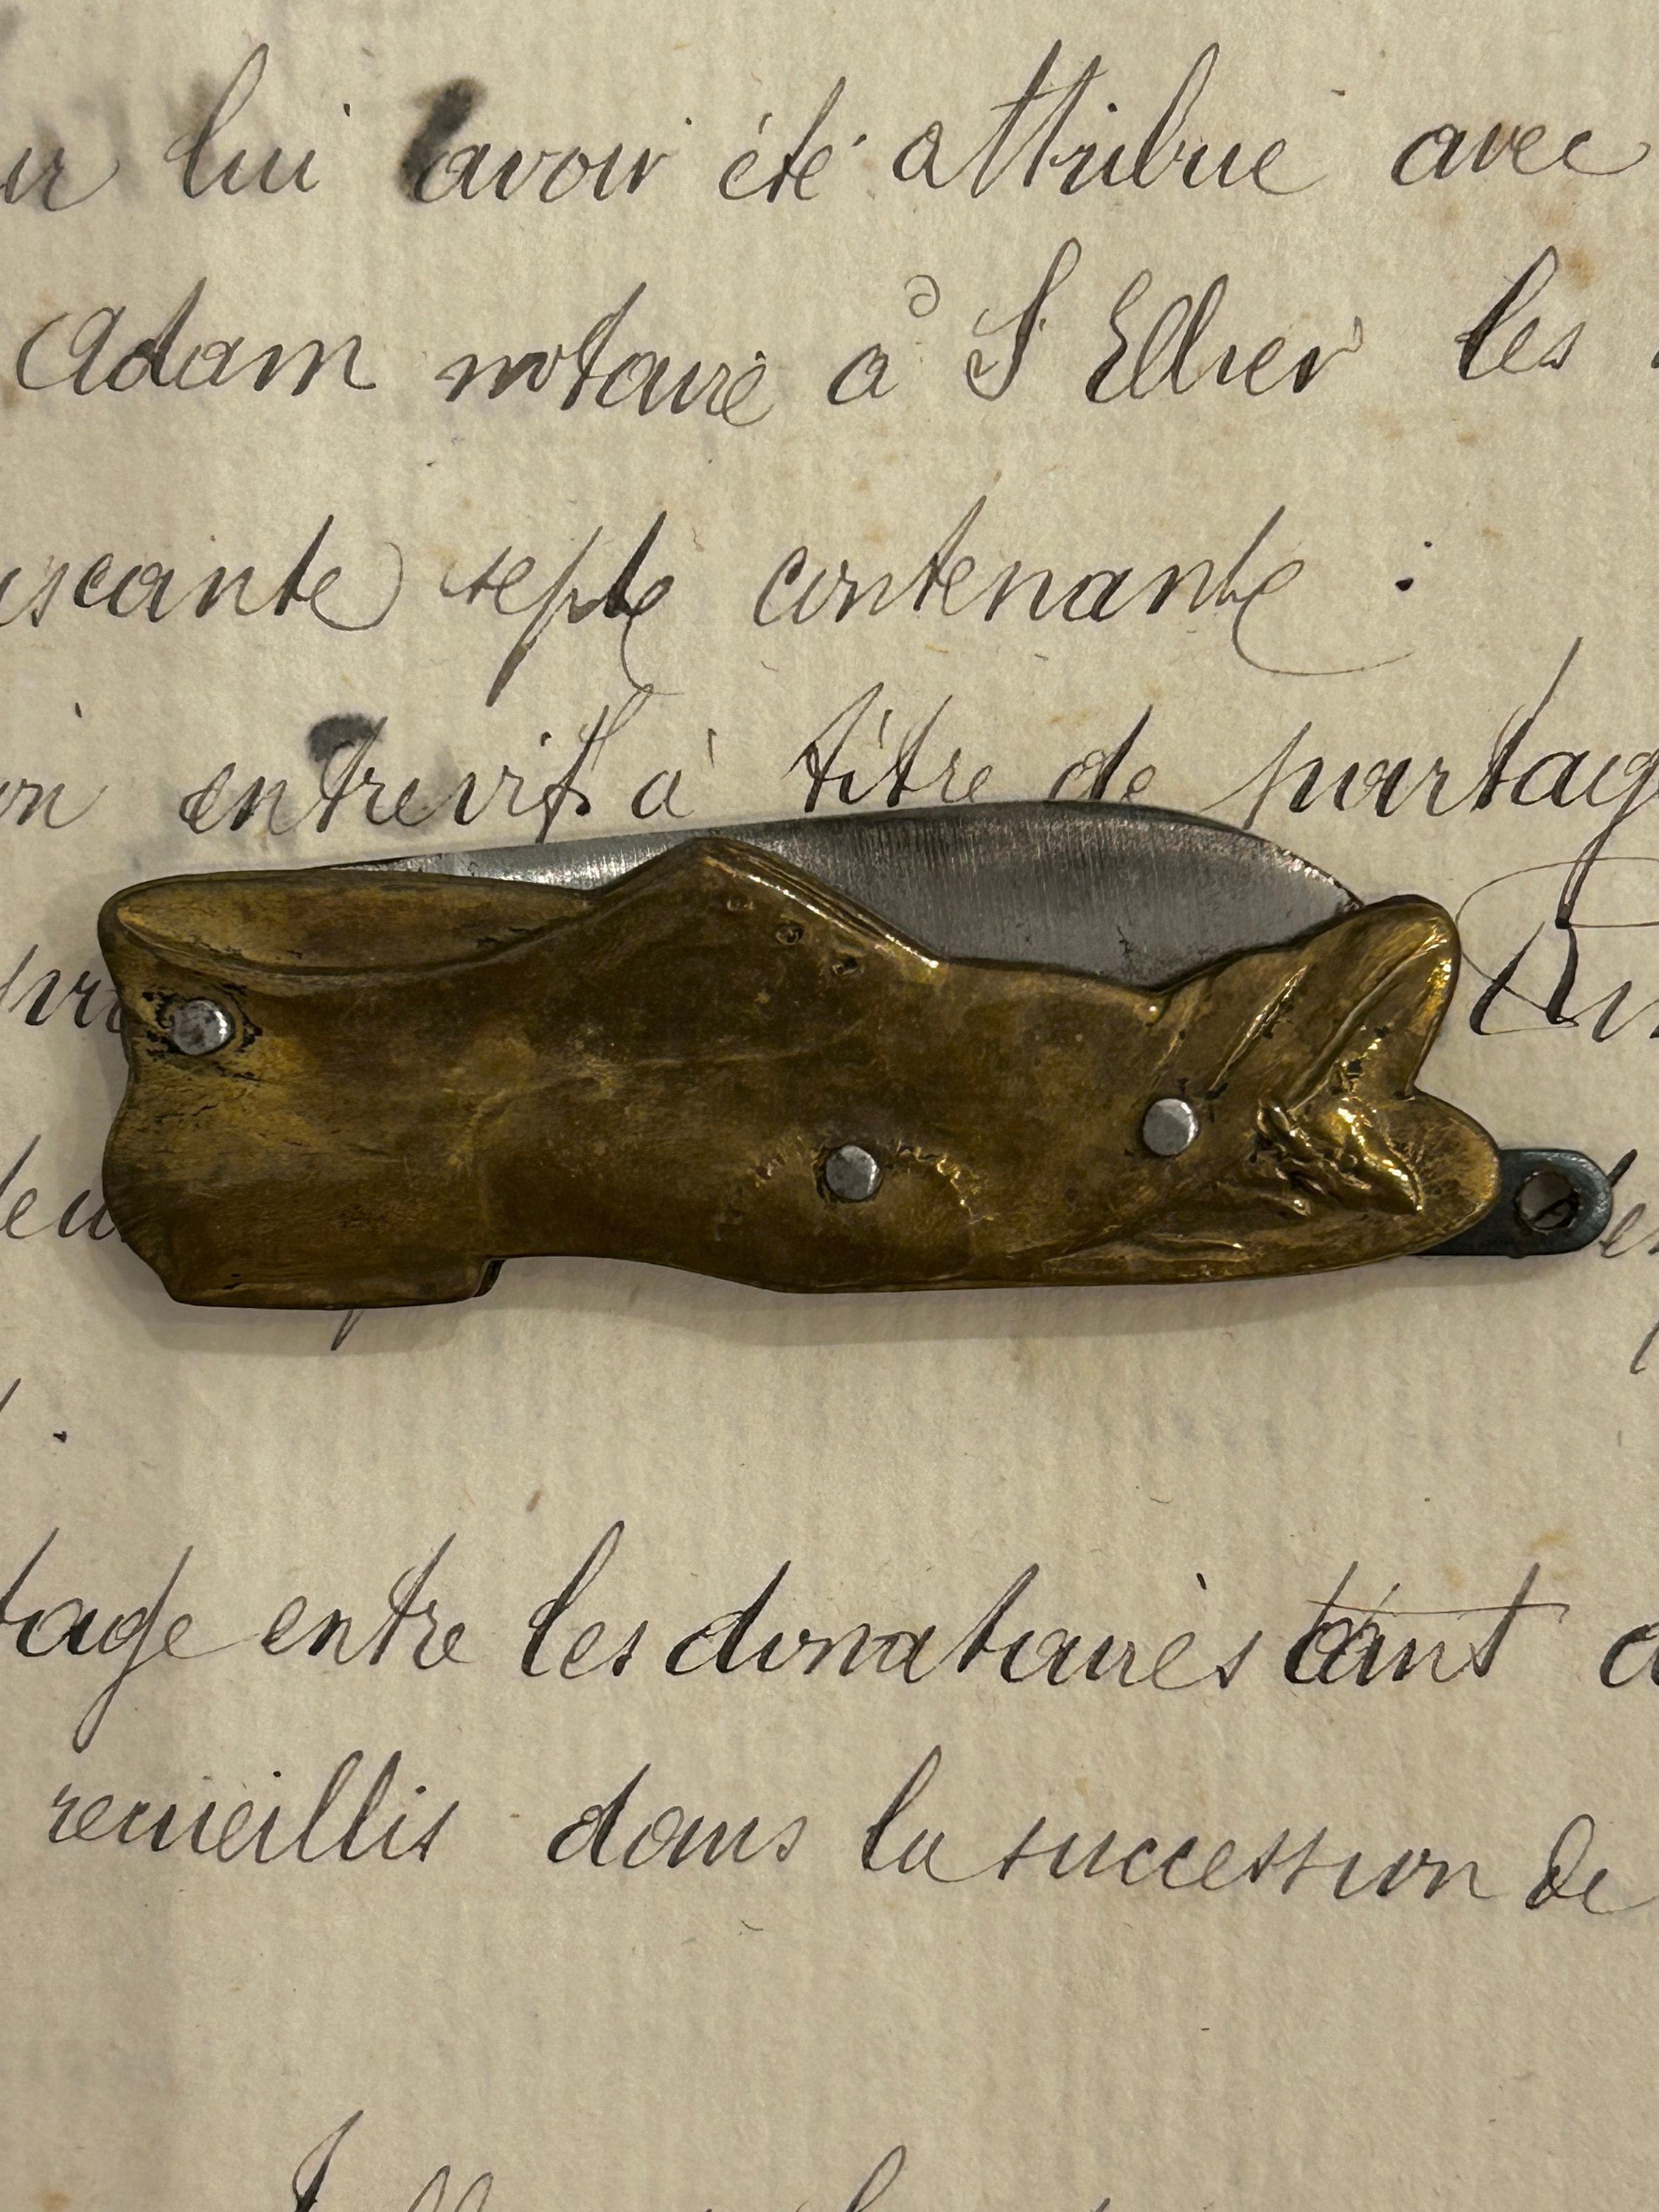 lui avoir été attribué avec
Adam notaire à St Ellier les
septe contenante :
entrevifs à titre de partag
tage entre les donataires tant
recueillis dans la succession de